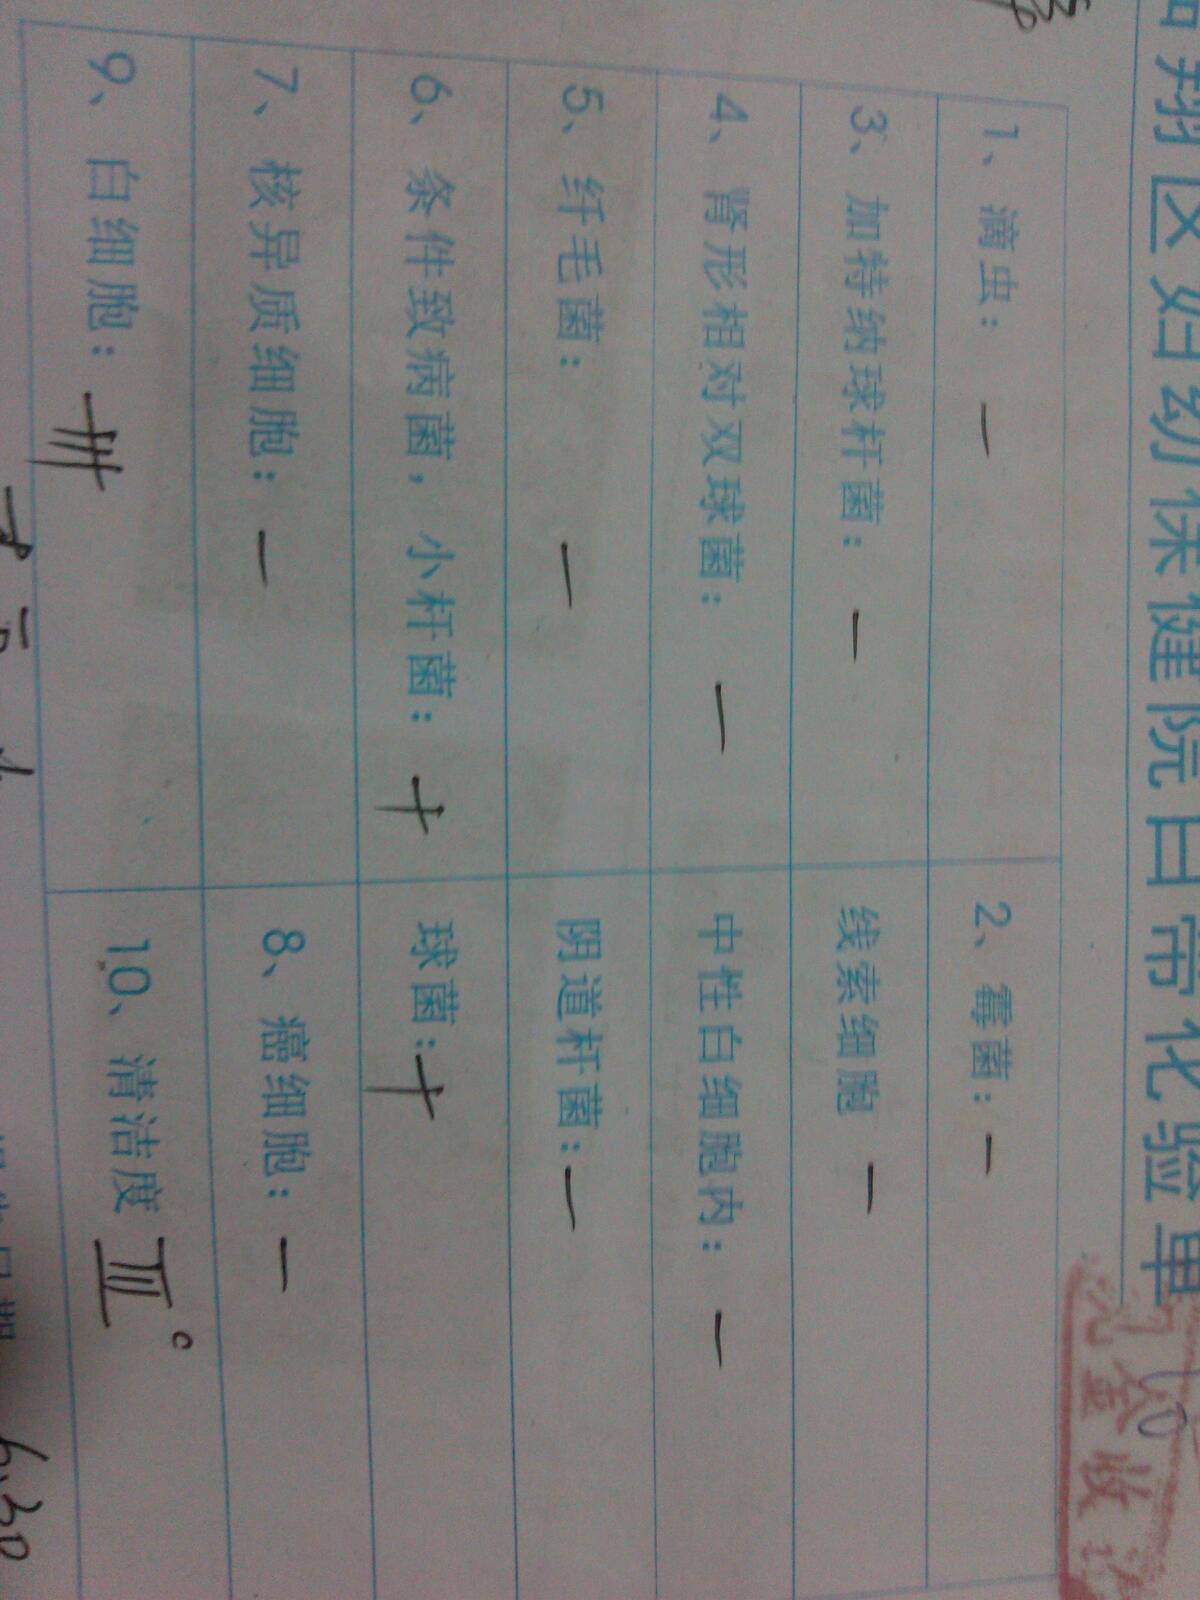 翔区妇幼保健院白带化验单
1、滴虫： — 2、霉菌： —
3、加特纳球杆菌： — 线索细胞 —
4、肾形相对双球菌： — 中性白细胞内： —
5、纤毛菌： — 阴道杆菌： —
6、条件致病菌，小杆菌： + 球菌： +
7、核异质细胞： — 8、癌细胞： —
9、白细胞： +++ 10、清洁度 III°
6.30